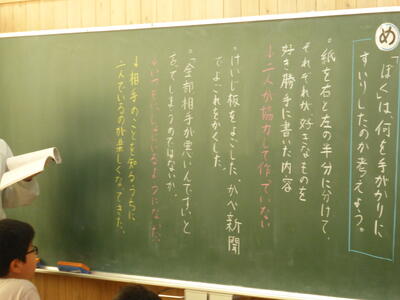 め
「ぼくは、何を手がかりに
すいりしたのか考えよう。
・紙を右と左の半分に分けて、
それぞれが、好きなものを
好き勝手に書いた内容
↓二人が協力して作っていない
・けいじ板をよごした、かべ新聞
でよごれをかくした。
・「全部相手が悪いんですい」と
↓相手のことを知るうちに
二人でいるのが楽しくなってきた。